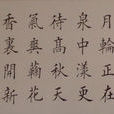 月輪正在
泉中漾更
待高秋天
氣爽蘜花
香裏開新